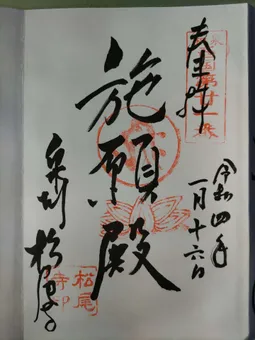 奉拝
令和四年
一月十六日
施願殿
泉州 松尾寺
松尾
寺印